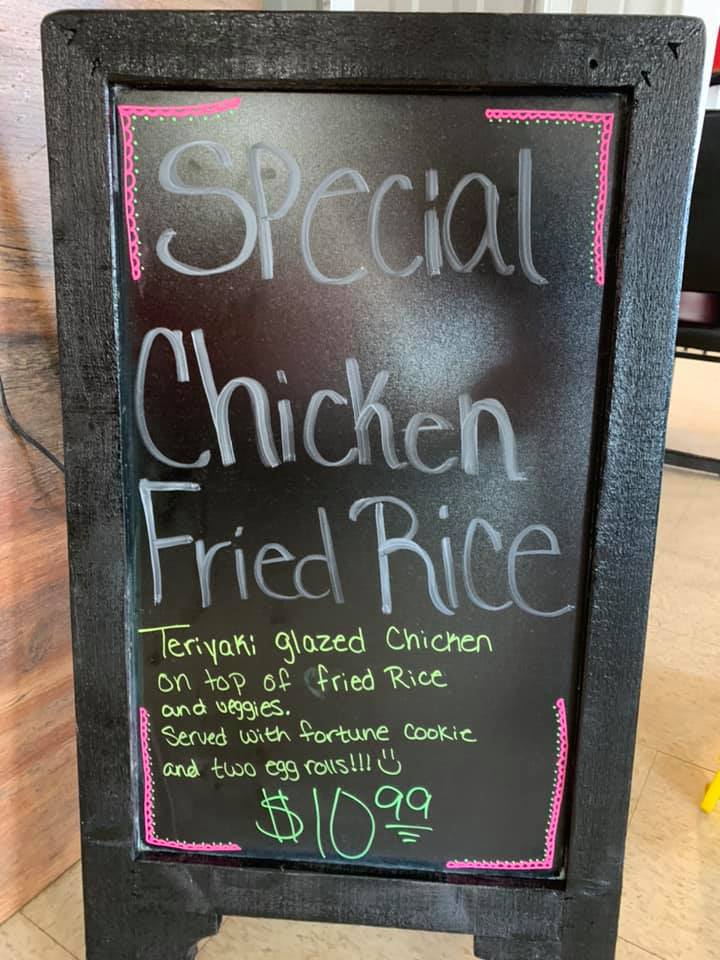 Special
Chicken
Fried Rice
Teriyaki glazed Chicken
on top of fried Rice
and veggies.
Served with fortune cookie
and two egg rolls!!! :)
$10.99